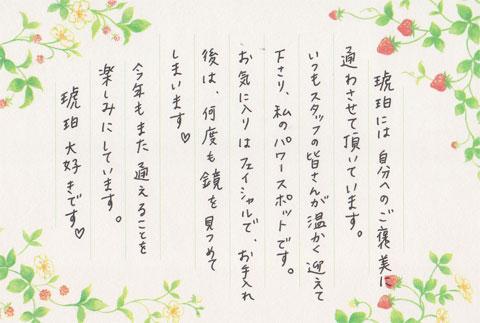 琥珀には自分へのご褒美に
通わさせて頂いています。
いつもスタッフの皆さんが温かく迎えて
下さり、私のパワースポットです。
お気に入りはフェイシャルで、お手入れ
後は、何度も鏡を見つめて
しまいます♡
今年もまた通えることを
楽しみにしています。
琥珀大好きです♡